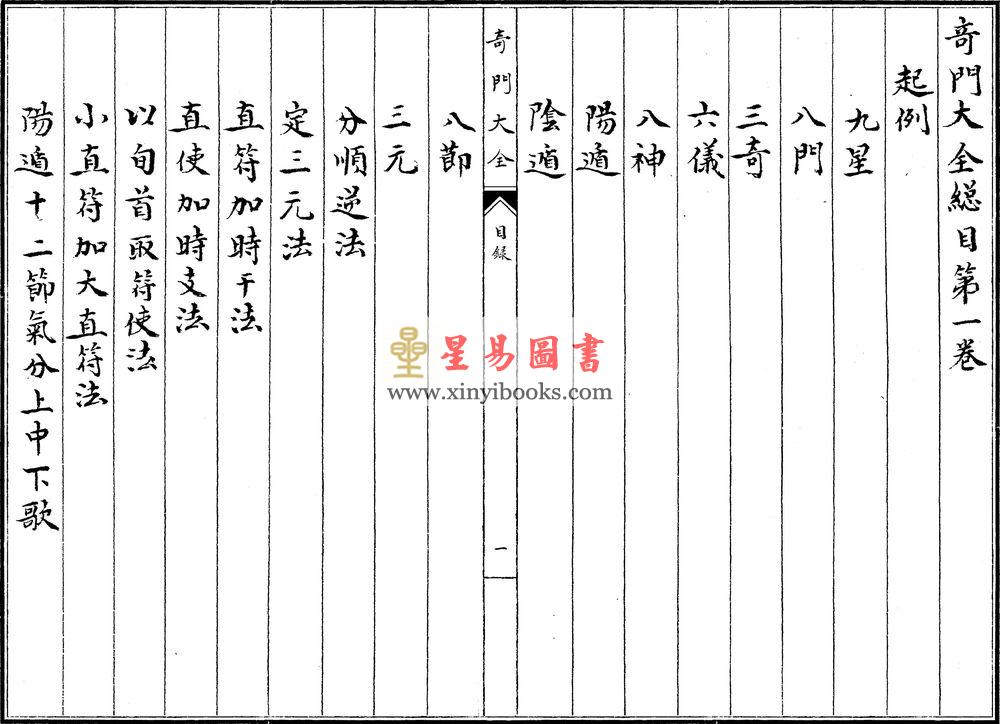 奇門大全総目第一卷
起例
九星
八門
三奇
六儀
八神
陽遁
陰遁
奇門大全
目録
一
八節
三元
分順逆法
定三元法
直符加時干法
直使加時支法
以旬首取符使法
小直符加大直符法
陽遁十二節氣分上中下歌
星易圖書
www.xinyibooks.com